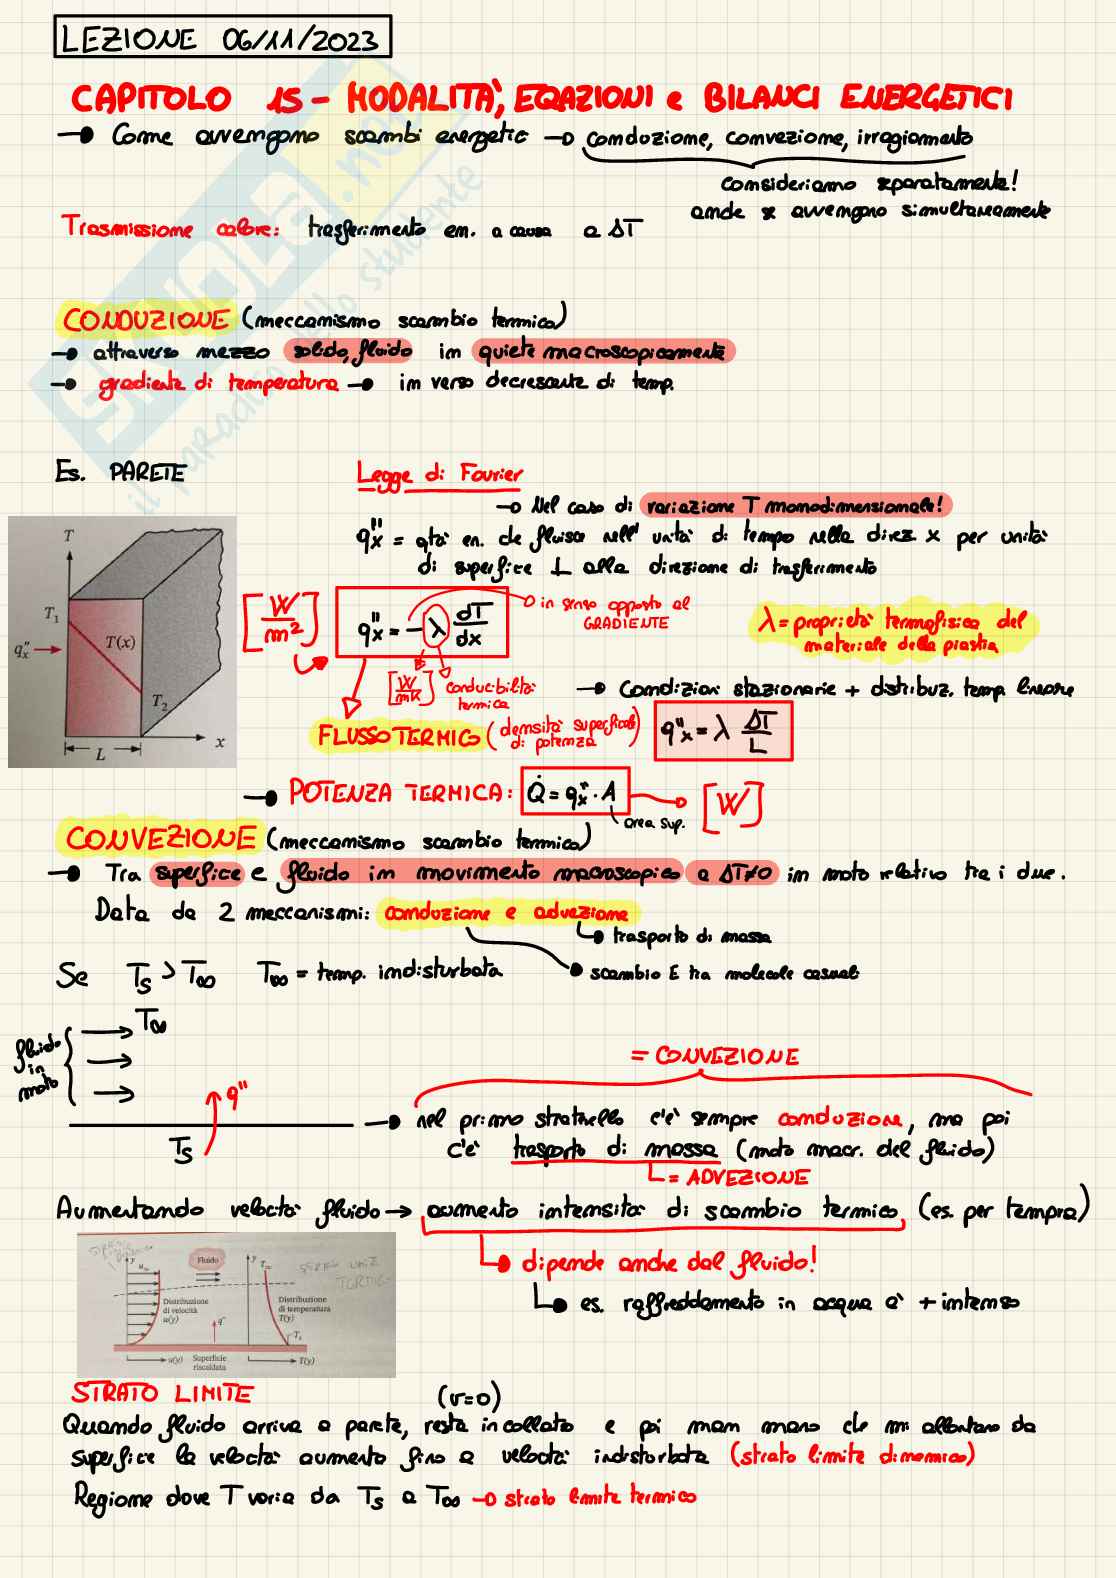 LEZIONE 06/11/2023
CAPITOLO 15 - MODALITÀ, EQAZIONI e BILANCI ENERGETICI
Come avvengono scambi energetic → conduzione, convezione, irragiamento
consideriamo separatamente!
anche se avvengono simultaneamente
Trasmissione calore: trasferimento en. a causa a ΔT
CONDUZIONE (meccanismo scambio termico)
→ attraverso mezzo solido, fluido in quiete macroscopicamente
→ gradiente di temperatura → in verso decrescente di temp.
Es. PARETE
Legge di Fourier
→ Nel caso di variazione T monodimensionale!
q"x = qtà en. che fluisce nell' unità di tempo nella direz. x per unità
di superfice ⊥ alla direzione di trasferimento
T
T1
T(x)
q"x
T2
L
x
[W/m²]
q"x = -λ dT/dx
in senso opposto al
GRADIENTE
λ = proprietà termofisica del
materiale della piastra
[W/mK] conducibilità
termica
→ Condizioni stazionarie + distribuz. temp. lineare
FLUSSO TERMICO (densità superficiale
di potenza)
q"x = λ ΔT/L
→ POTENZA TERMICA: Q̇ = q"x · A → [W]
area sup.
CONVEZIONE (meccanismo scambio termico)
→ Tra superfice e fluido in movimento macroscopico a ΔT≠0 in moto relativo tra i due.
Data da 2 meccanismi: conduzione e advezione
trasporto di massa
scambio E tra molecole casuali
Se Ts > T∞ T∞ = temp. indisturbata
T∞
fluido
in
moto
q"
Ts
= CONVEZIONE
→ nel primo straterello c'è sempre conduzione, ma poi
c'è trasporto di massa (moto macr. del fluido)
= ADVEZIONE
Aumentando velocità fluido → aumento intensità di scambio termico (es. per tempra)
dipende anche dal fluido!
es. raffreddamento in acqua è + intenso
y
u∞
Fluido
y
T∞
Distribuzione
di velocità
u(y)
q"
Distribuzione
di temperatura
T(y)
Ts
u(y)
Superficie
riscaldata
T(y)
STRATO LIMITE
(v=0)
Quando fluido arriva a parete, resta incollato e poi mam mano che mi allontano da
superfice la velocità aumenta fino a velocità indisturbata (strato limite dinamico)
Regione dove T varia da Ts a T∞ → strato limite termico
SKUOLA.net
il paradiso dello studente